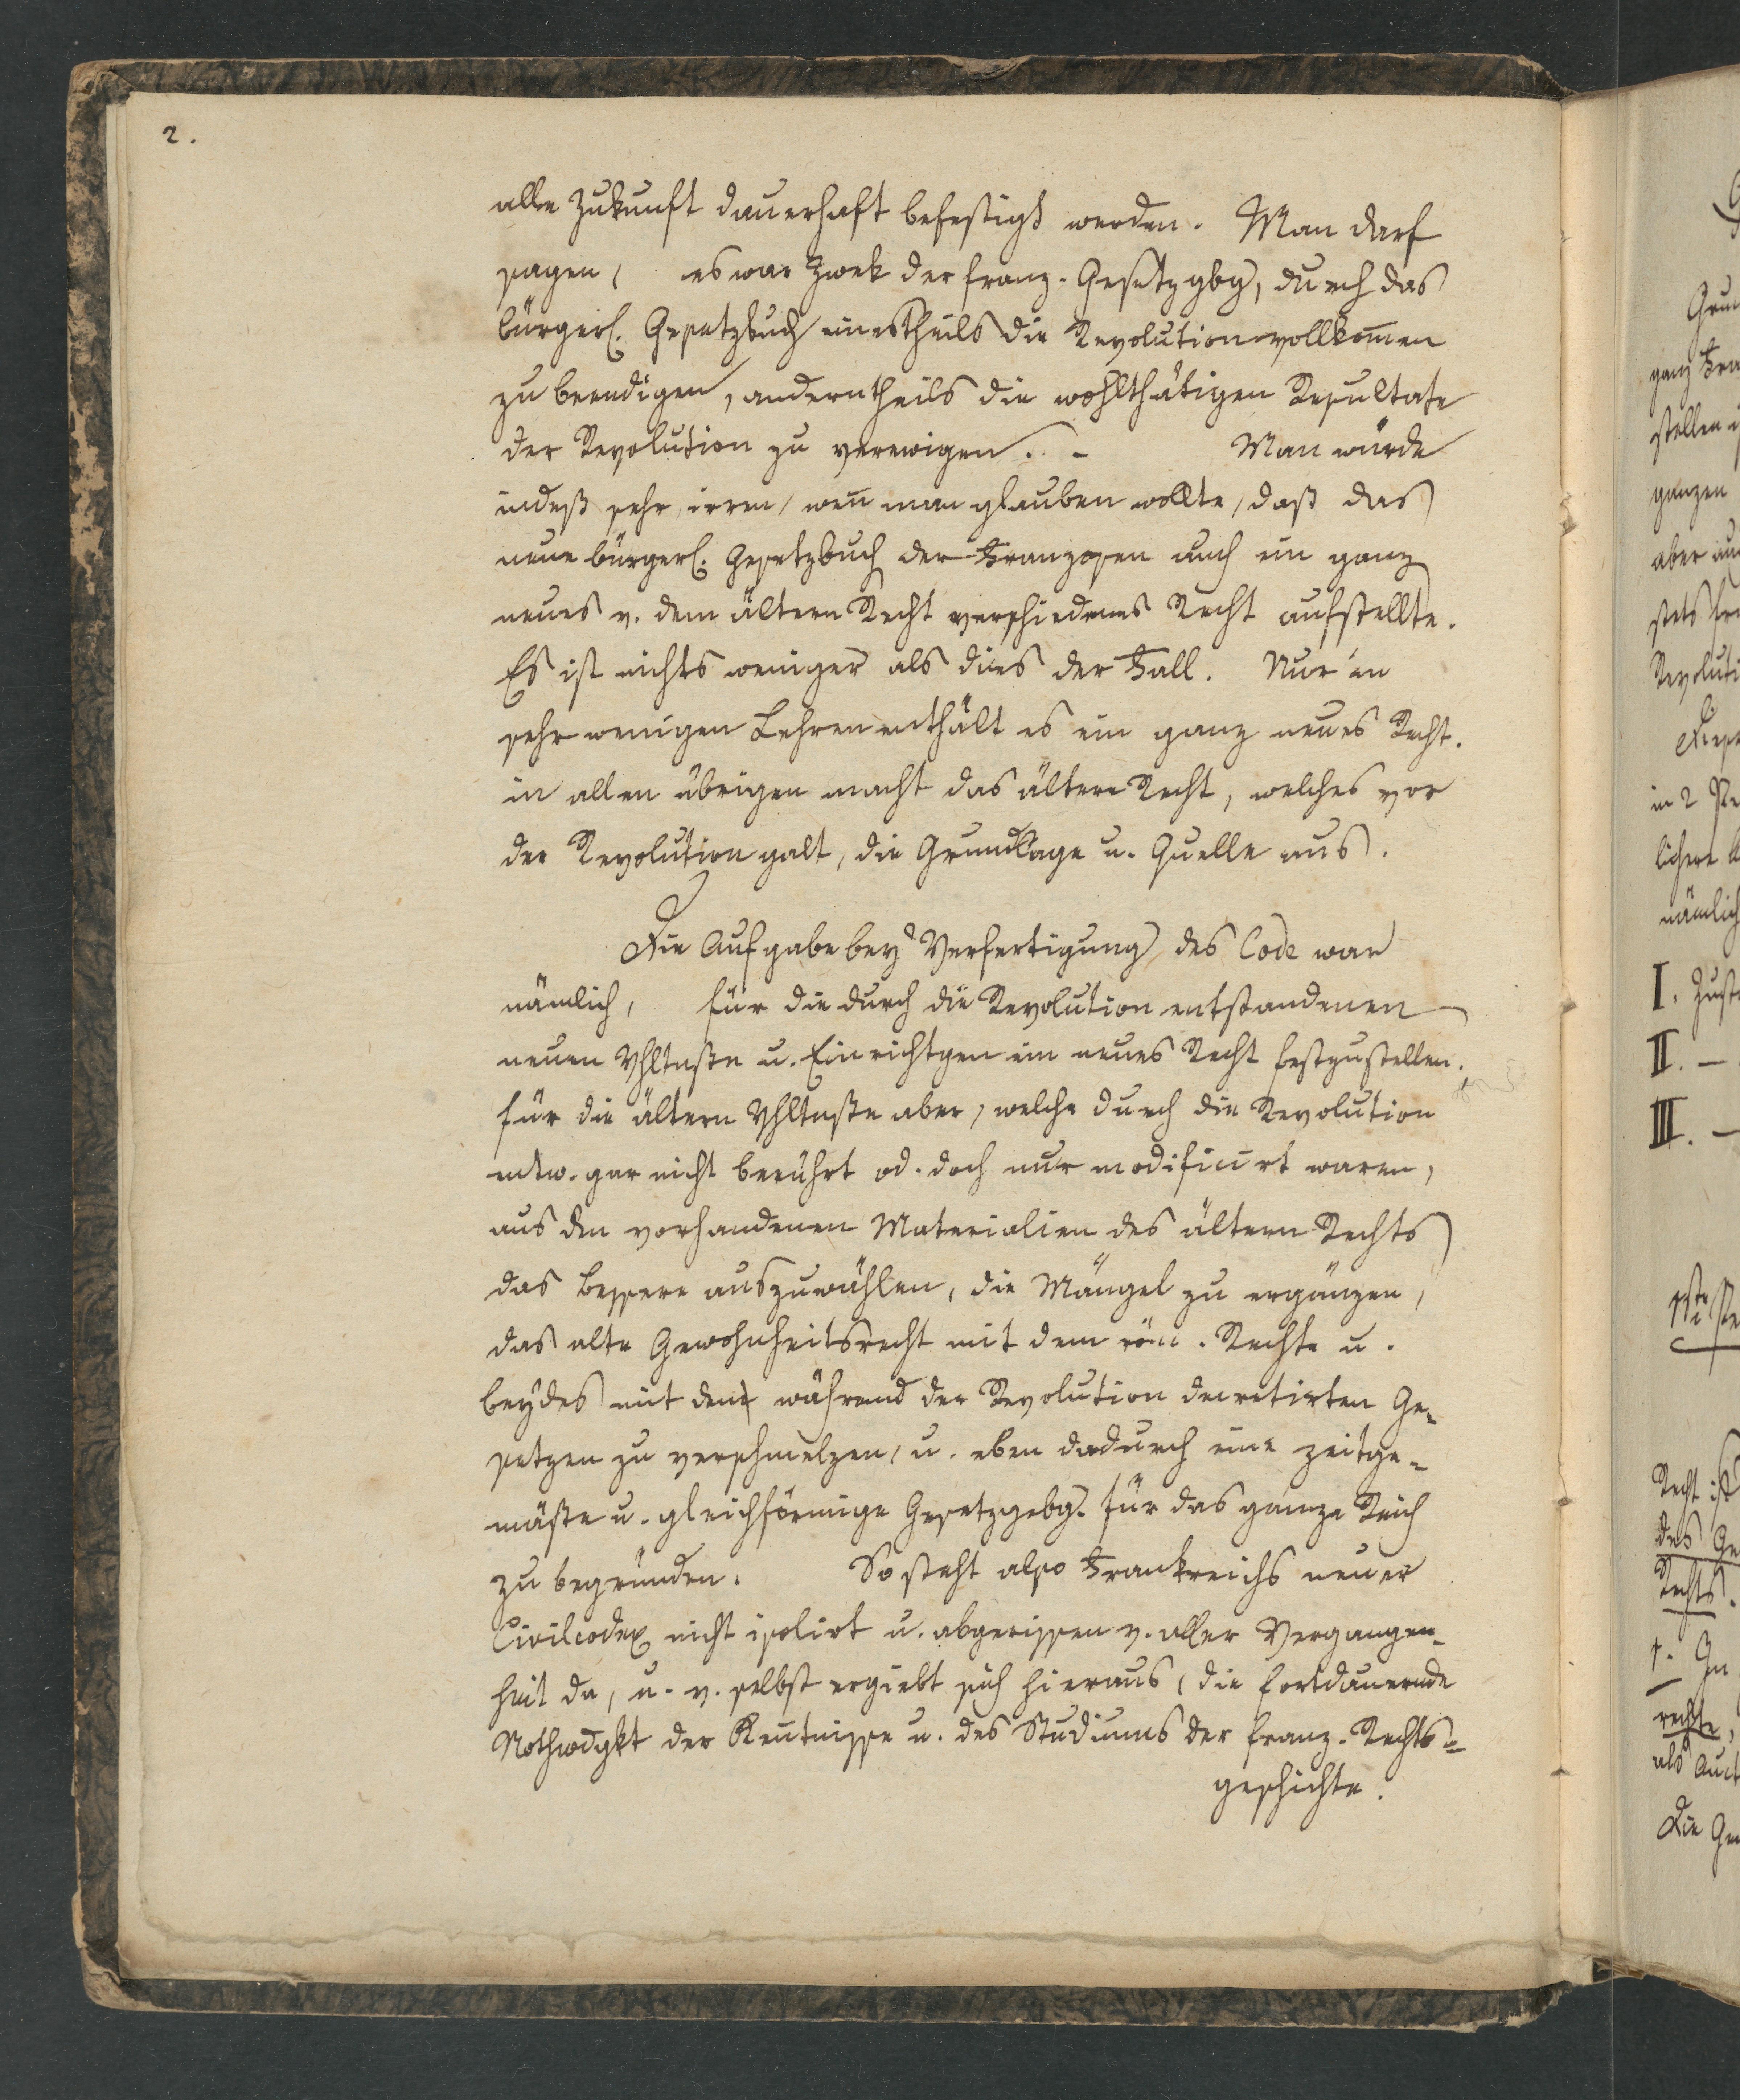 2.
alle Zukunft dauerhaft befestigt werden. Man darf
sagen, es war Zwek der franz. Gesetzgbg, durch das
bürgerl. Gesetzbuch einestheils die Revolution vollkom̅en
zu beendigen, anderntheils die wohlthätigen Resultate
der Revolution zu verewigen. - Man würde
indeß sehr irren, wen̅ man glauben wollte, daß das
neue bürgerl. Gesetzbuch der Franzosen auch ein ganz
neues v. dem ältern Recht verschiedenes Recht aufstellte.
Es ist nichts weniger als dies der Fall. Nur in
sehr wenigen Lehren enthält es ein ganz neues Recht.
in allen übrigen macht das ältere Recht, welches vor
der Revolution galt, die Grundlage u. Quelle aus.
Die Aufgabe bey Verfertigung des Code war
nämlich, für die durch die Revolution entstandenen
neuen Vhltnße u. Einrichtgen ein neues Recht festzustellen.
für die ältern Vhltnße aber, welche durch die Revolution
entw. gar nicht berührt od. doch nur modificirt waren,
aus den vorhandenen Materialien des ältern Rechts
das Bessere auszuwählen, die Mängel zu ergänzen,
das alte Gewohnheitsrecht mit dem röm. Rechte u.
beydes mit den während der Revolution decretirten Ge-
setzen zu verschmelzen, u. eben dadurch eine zeitge-
mäße u. gleichförmige Gesetzgebg. für das ganze Reich
zu begründen. So steht also Frankreichs neuer
Civilcodex nicht isolirt u. abgerissen v. aller Vergangen-
heit da, u. v. selbst ergiebt sich hieraus, die fortdauernde
Nothwdgkt der Ken̅tnisse u. des Studiums der franz. Rechts-
geschichte.
ganz
stellen
ganzen
aber
stets
in 2
nämlich
I.
II. -
III. -
Recht ist
des Ge
Rechts.
1. In
rechte,
als
Die